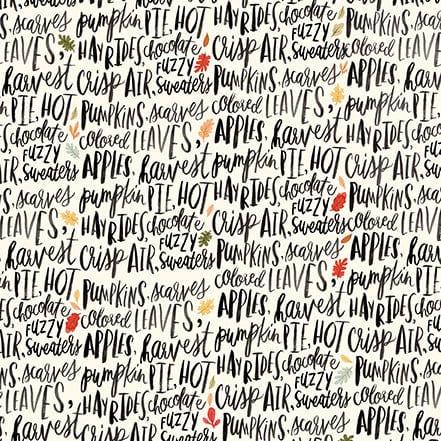 scarves
LEAVES,
harvest
PIE, HOT
chocolate
FUZZY
AIR, sweaters
scarves
LEAVES,
harvest
PIE, HOT
chocolate
FUZZY
AIR, sweaters
scarves
LEAVES,
harvest
pumpkin PIE, HOT
HAYRIDES, chocolate
FUZZY
CRISP AIR, sweaters
PUMPKINS, scarves
colored LEAVES,
APPLES, harvest
pumpkin PIE, HOT
HAYRIDES, chocolate
FUZZY
CRISP AIR, sweaters
PUMPKINS, scarves
colored LEAVES,
APPLES, harvest
pumpkin PIE, HOT
HAYRIDES, chocolate
FUZZY
CRISP AIR, sweaters
HAYRIDES, chocolate
FUZZY
CRISP AIR, sweaters
PUMPKINS, scarves
colored LEAVES,
APPLES, harvest
pumpkin PIE, HOT
HAYRIDES, chocolate
FUZZY
CRISP AIR, sweaters
PUMPKINS, scarves
colored LEAVES,
APPLES, harvest
pumpkin PIE, HOT
HAYRIDES, chocolate
FUZZY
CRISP AIR, sweaters
PUMPKINS, scarves
PUMPKINS,
colored
APPLES,
pumpkin
HAYRIDES
CRISP AIR
PUMPKINS,
colored
APPLES,
pumpkin
HAYRIDES
CRISP AIR
PUMPKINS,
colored
APPLES,